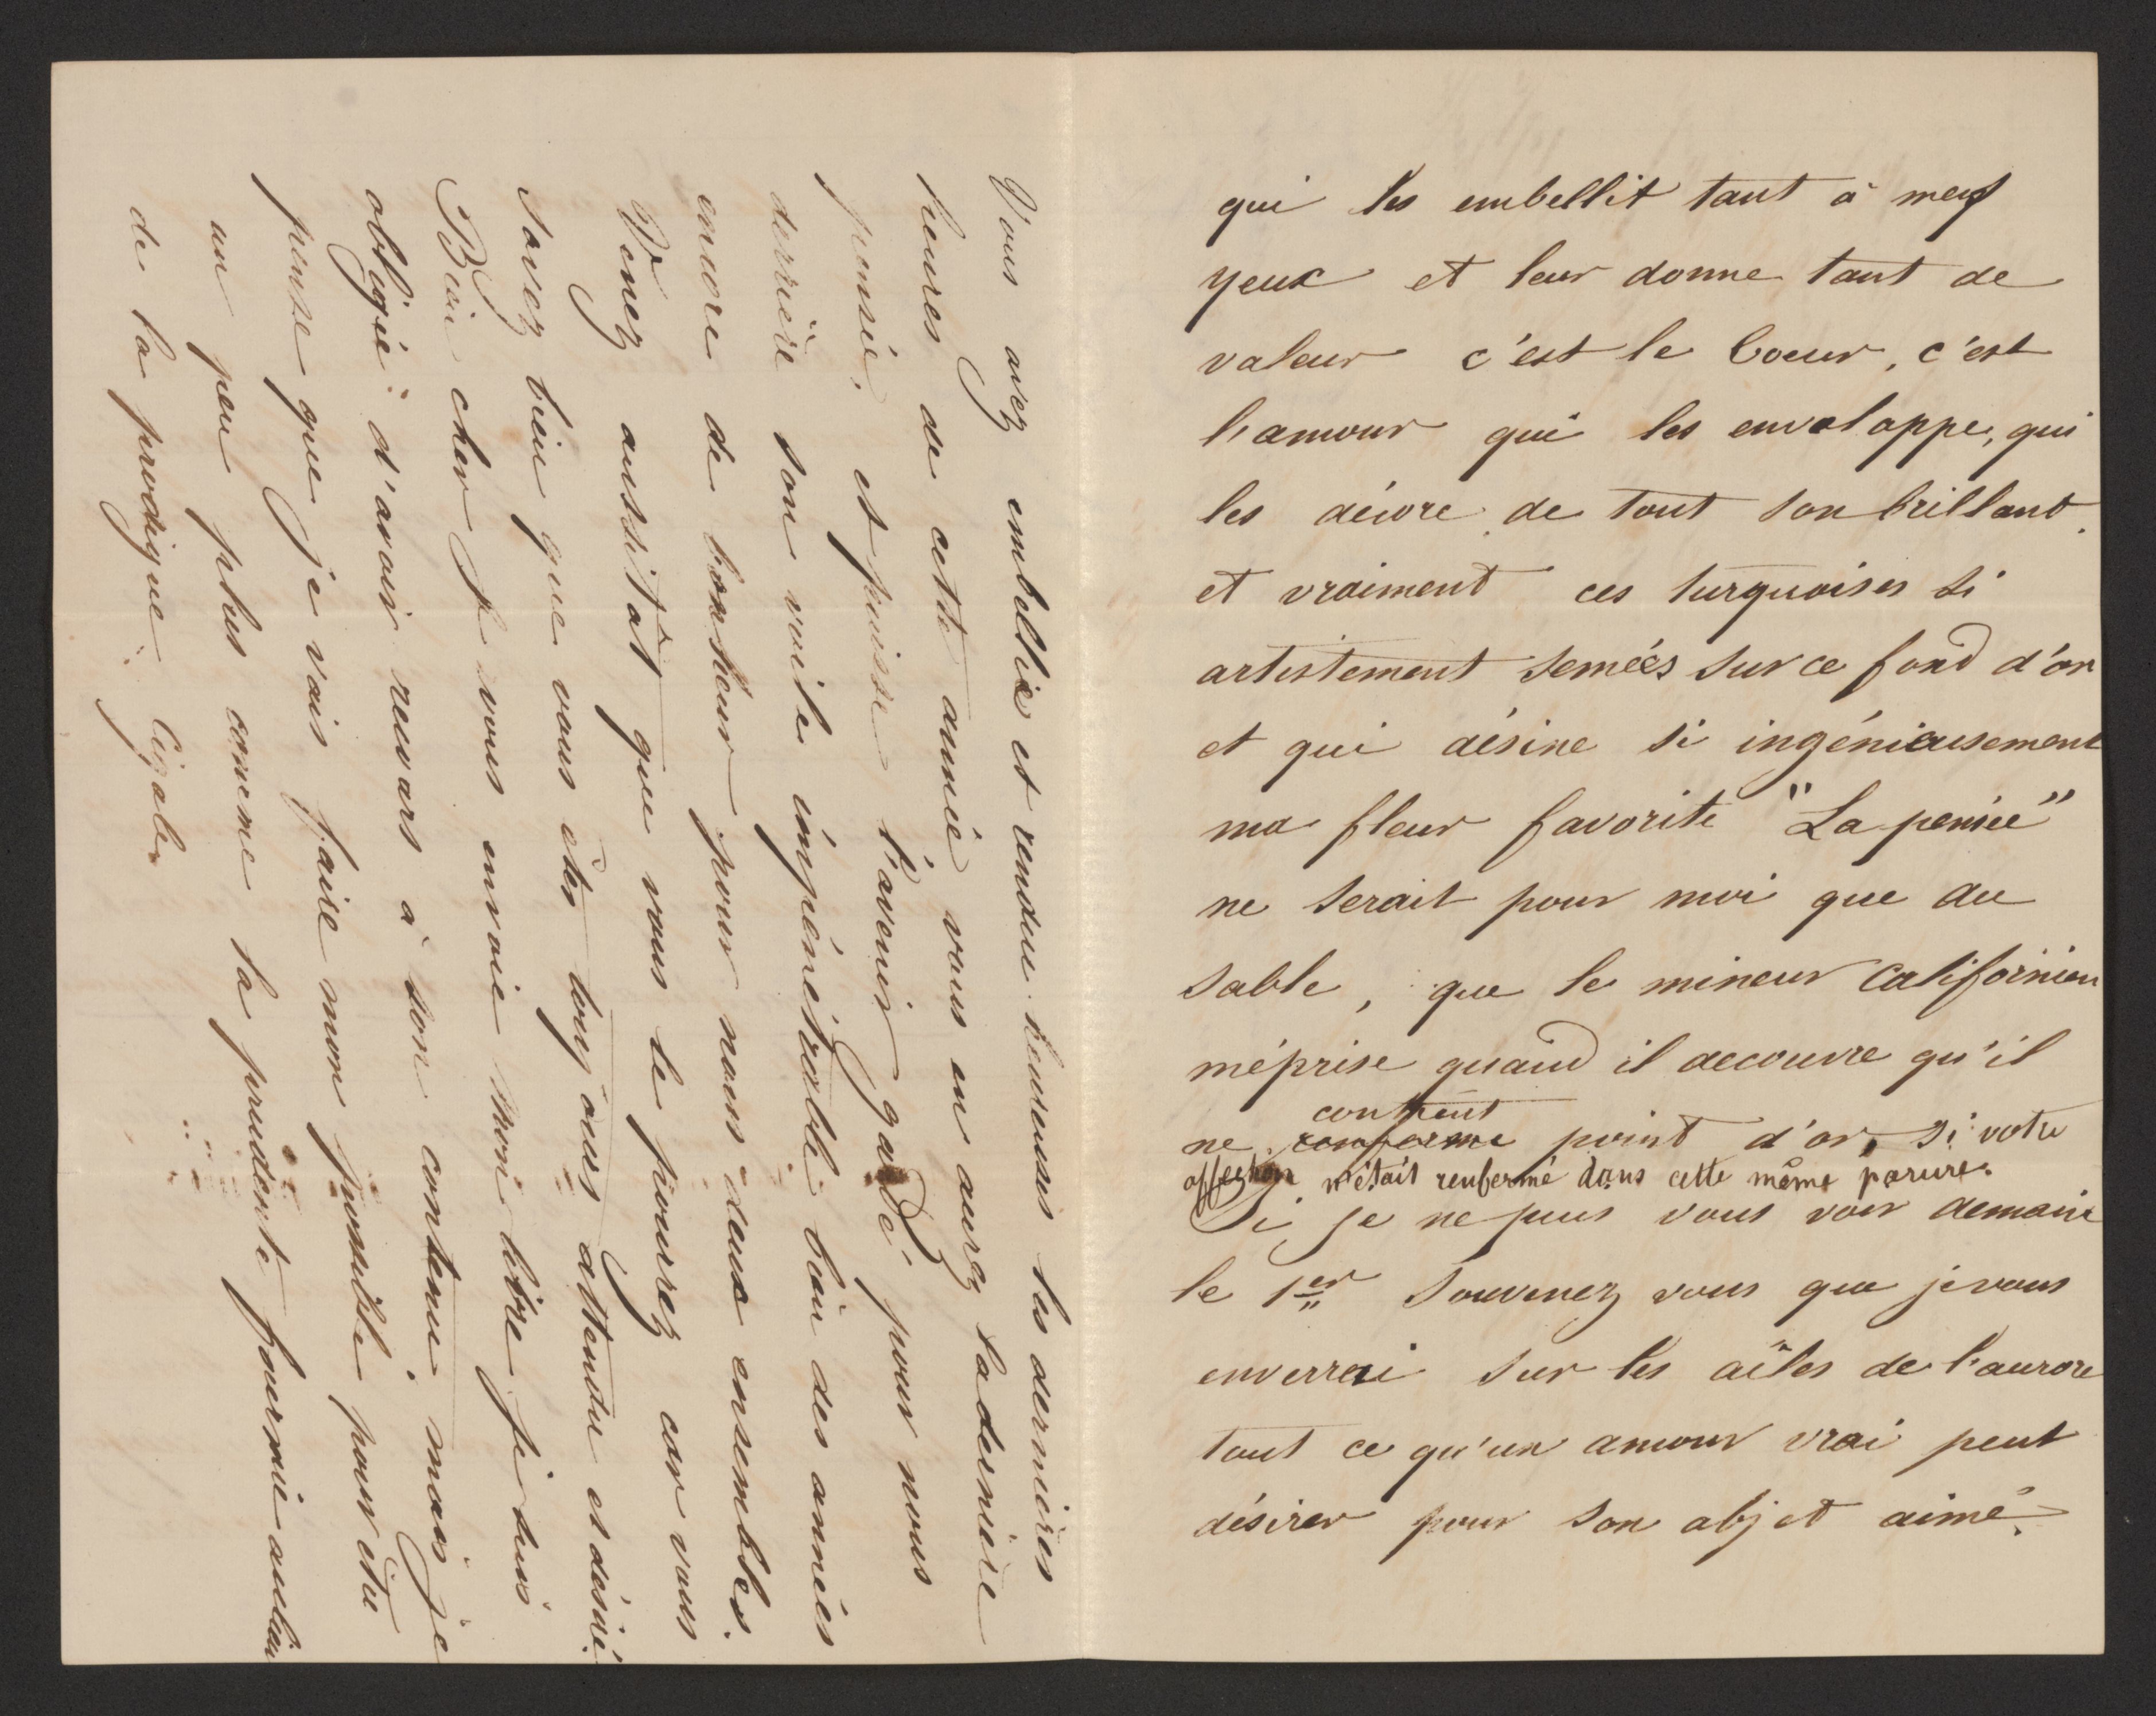 qui les embellit tant à mes
yeux et leur donne tant de
valeur c'est le Coeur, c'est
l'amour qui les enveloppe, qui
les décore de tout son brillant.
et vraiment ces turquoises si
artistement semées sur ce fond d'or
et qui désine si ingénieusement
ma fleur favorite "La pensée"
ne serait pour moi que du
sable, que le mineur Californien
méprise quand il decouvre qu'il
contient
ne renferme point d'or, si votre
affection n'était renfermé dans cette même parure.
Si je ne puis vous voir demain
le 1er Souvenez vous que je vous
enverrai sur les aîles de l'aurore
tout ce qu'un amour vrai peut
désirer pour son objet aimé.
Vous avez embellie et rendue heureuses les dernières
heures de cette année vous en aurez la dernière
pensée, et puisse l'avenir gardé pour nous
derrière son voile impénétrable bien des années
encore de bonheur pour nous deux ensembles.
Venez aussitôt que vous le pourez car vous
savez bien que vous êtes toujours attendu et désiré.
Bien cher je vous envoie mon livre je suis
obligée d'avoir recours à son contenu, mais je
pense que je vais faire mon possible pour être
un peu plus comme la prudente fourmie au lieu
de la prodigue Cigale.